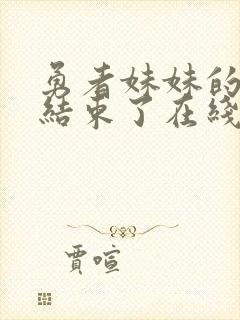 勇者妹妹的
結束了在綫
賈喧